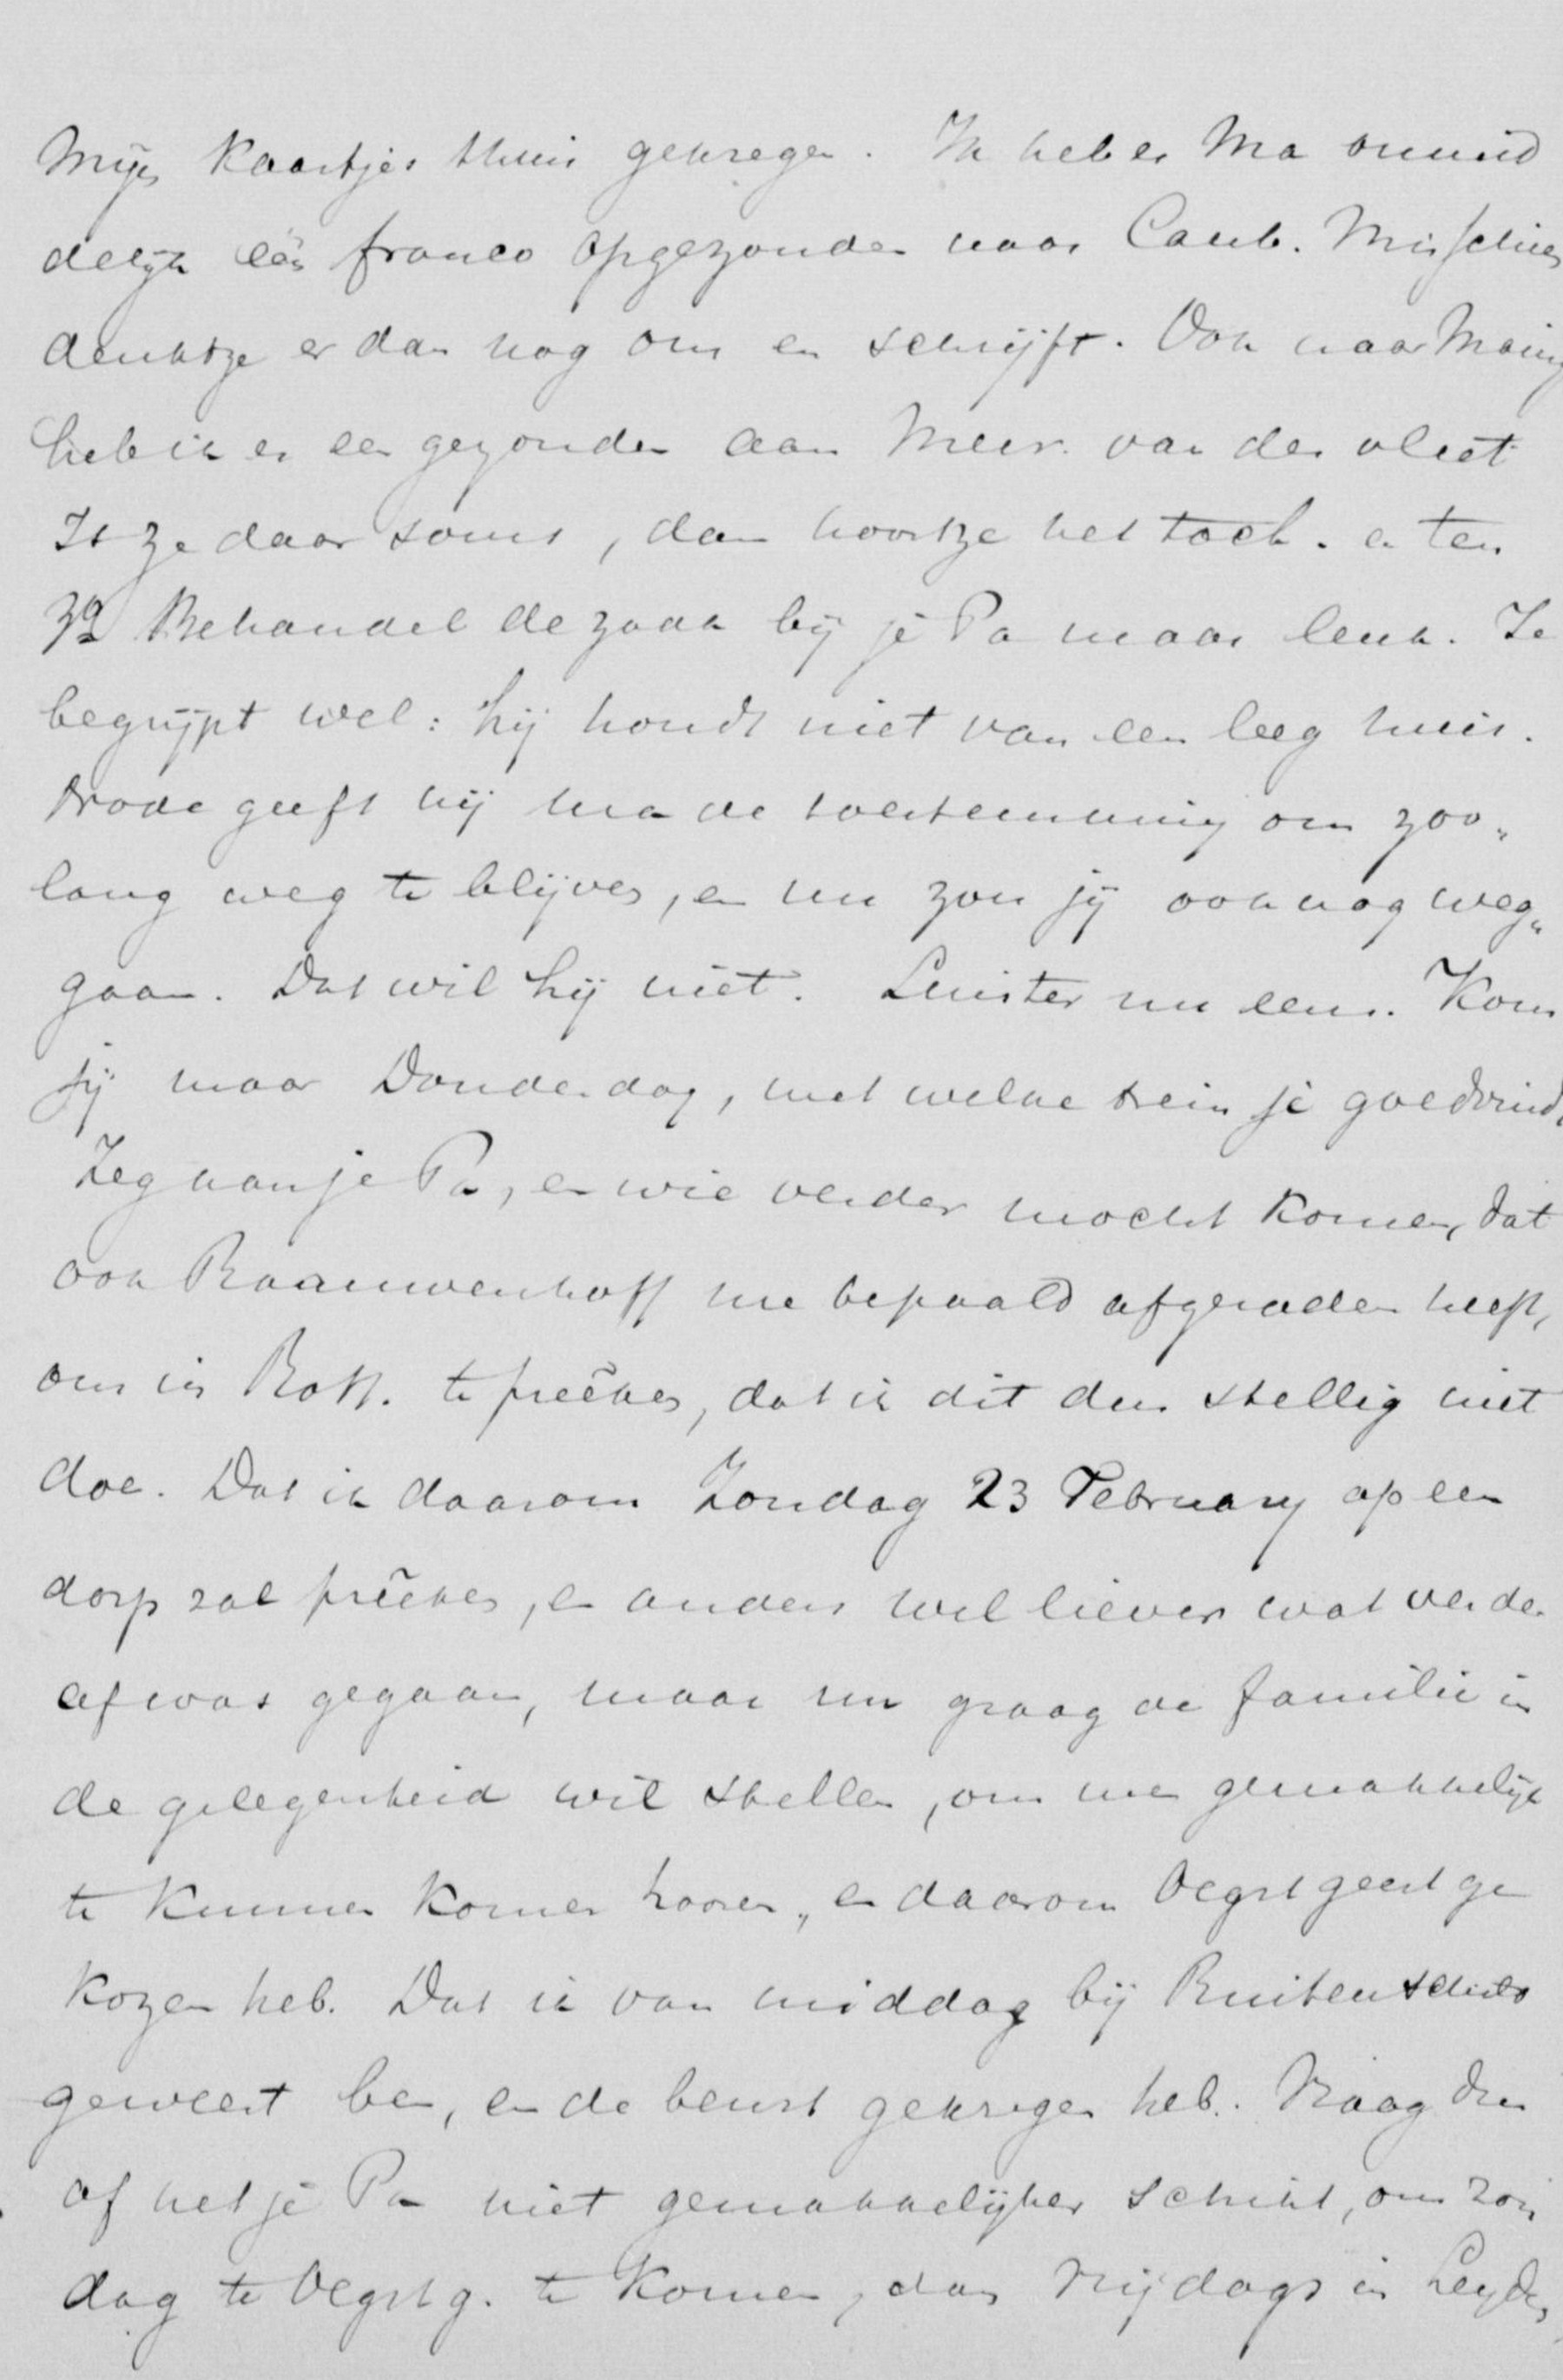 Mijn Kaartjes thuis gekregen. Ik heb er Ma onmid
delijk één franco opgezonden naar Camb. Misschien
denkt ze er dan nog om en schrijft. Ook naar
heb ik er een gezonden aan Mevr. van der vliet
Is ze daar soms, dan hoort ze het toch. en ten
3e Behandel de zaak bij je Pa maar leuk. Je
begrijpt wel: hij houdt niet van een leeg huis.
Noode geeft hij ma de toestemming om zoo„
lang weg te blijven, en nu zou jij ook nog weg„
gaan. Dat wil hij niet. Luister nu eens. Kom
jij maar Donderdag, met welke trein je goedvindt
Zeg aan je Pa, en wie verder mocht komen, dat
ook Rauwenhoff me bepaald afgeraden heeft,
om in Rott. te preêken, dat ik dit dus stellig niet
doe. Dat ik daarom Zondag 23 February op een
dorp zal preêken, en anders wel liever wat verder
af was gegaan, maar nu graag de familie in
de gelegenheid wil stellen, om me gemakkelijk
te kunnen komen hooren, en daarom Oegstgeest ge
kozen heb. Dat ik van middag bij Ruitenschild
geweest ben, en de beurt gekregen heb. Vraag dus
of het je Pa niet gemakkelijker schikt, om Zon
dag te Oegstg. te komen, dan Vrijdags in Leyden,